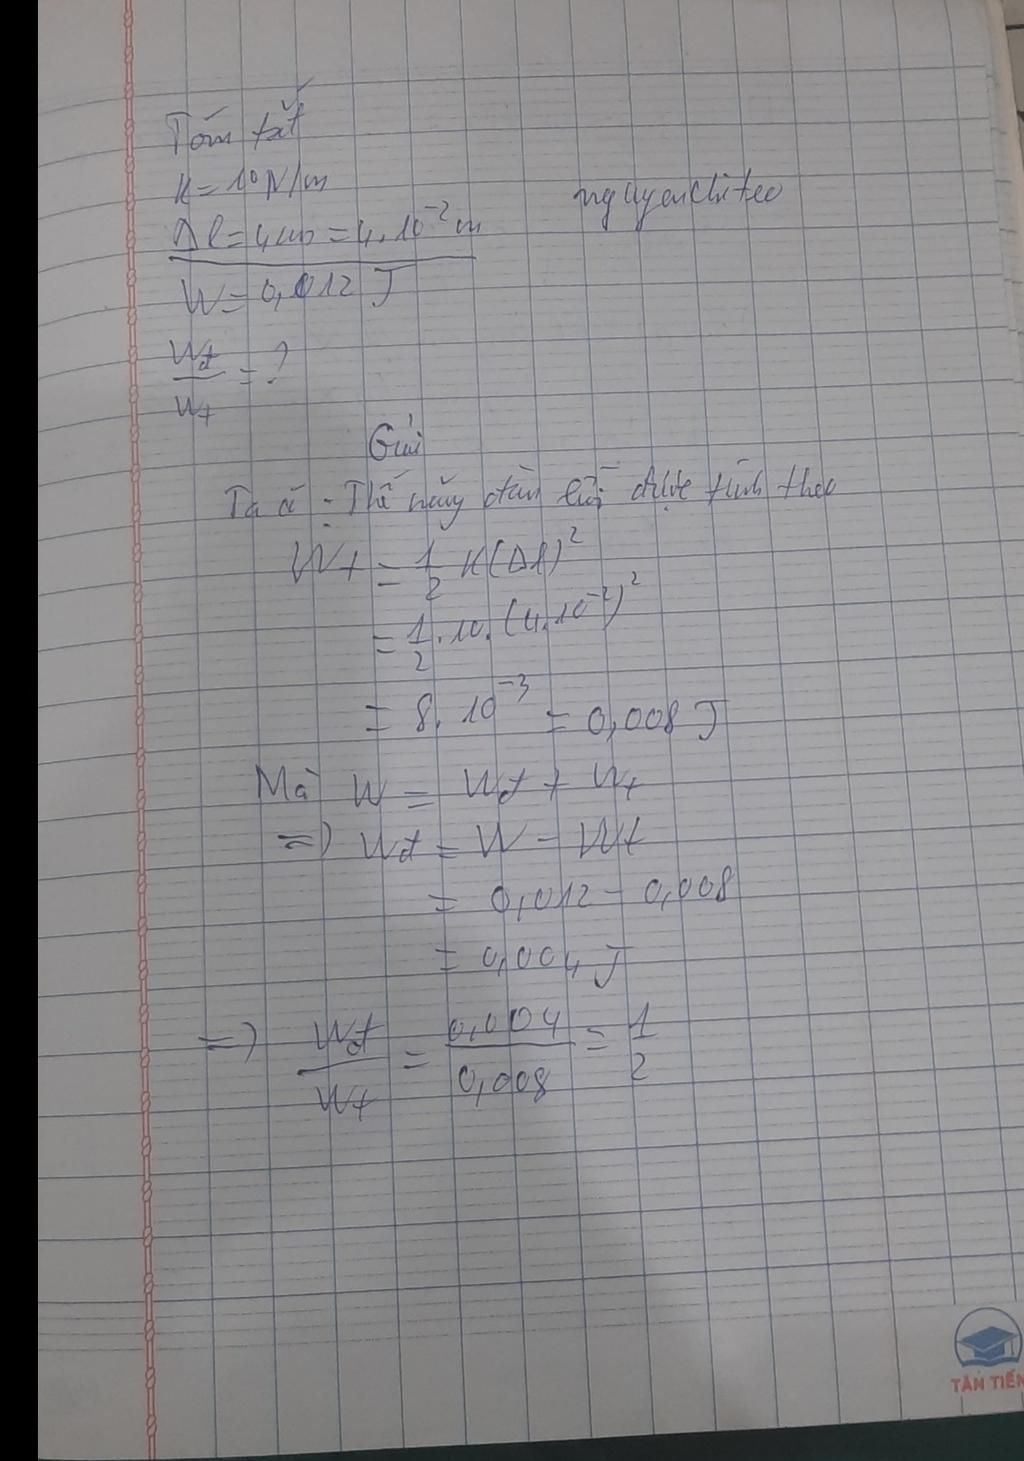 Tóm tắt
K = 10 N/m
nguyenchiteo
Δl = 4cm = 4.10⁻² m
W = 0,012 J
Wđ/Wt = ?
Giải
Ta có : Thế năng đàn hồi được tính theo
Wt = 1/2 K(Δl)²
= 1/2 . 10 . (4.10⁻²)²
= 8. 10⁻³ = 0,008 J
Mà W = Wđ + Wt
=> Wđ = W - Wt
= 0,012 - 0,008
= 0,004 J
=> Wđ/Wt = 0,004/0,008 = 1/2
TÂN TIẾN